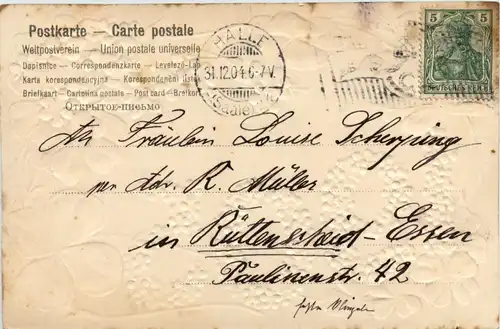 Postkarte – Carte postale
Weltpostverein – Union postale universelle
Dopisnice – Correspondenzkarte – Levelező-Lap
Karta korespondencyjna – Korespondenčni listek
Briefkart – Cartolina postale – Post card – Brefkort
Открытое-письмо
HALLE
31.12.04.6-7V.
(Saale)
5 5
DEUTSCHES REICH
An Fräulein Louise Scherping
per Adr. R. Müller
in Rüttenscheid-Essen
Paulinenstr. 42